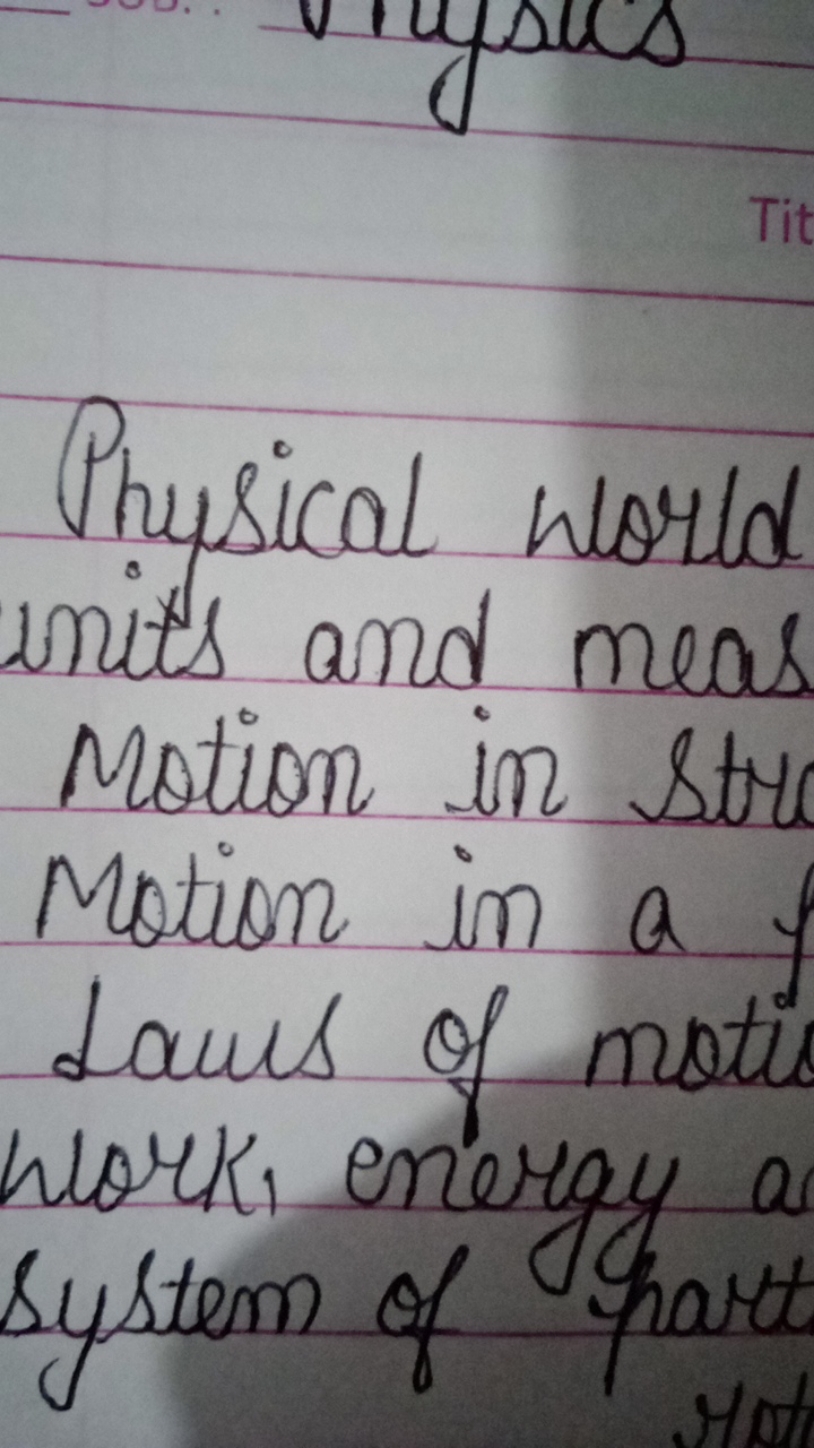 SUB. : Physics
Tit
Physical world
units and meas
Motion in stra
Motion in a p
Laws of motio
Work, energy a
system of part
rot